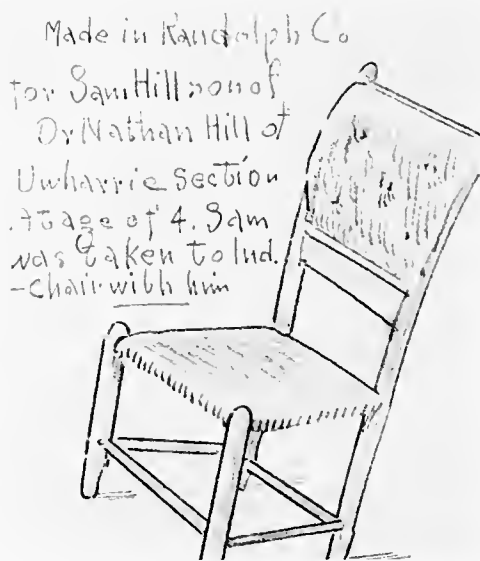 Made in Randolph Co
for Sam Hill son of
Dr Nathan Hill of
Uwharrie section
At age of 4. Sam
was taken to Ind.
-chair with him